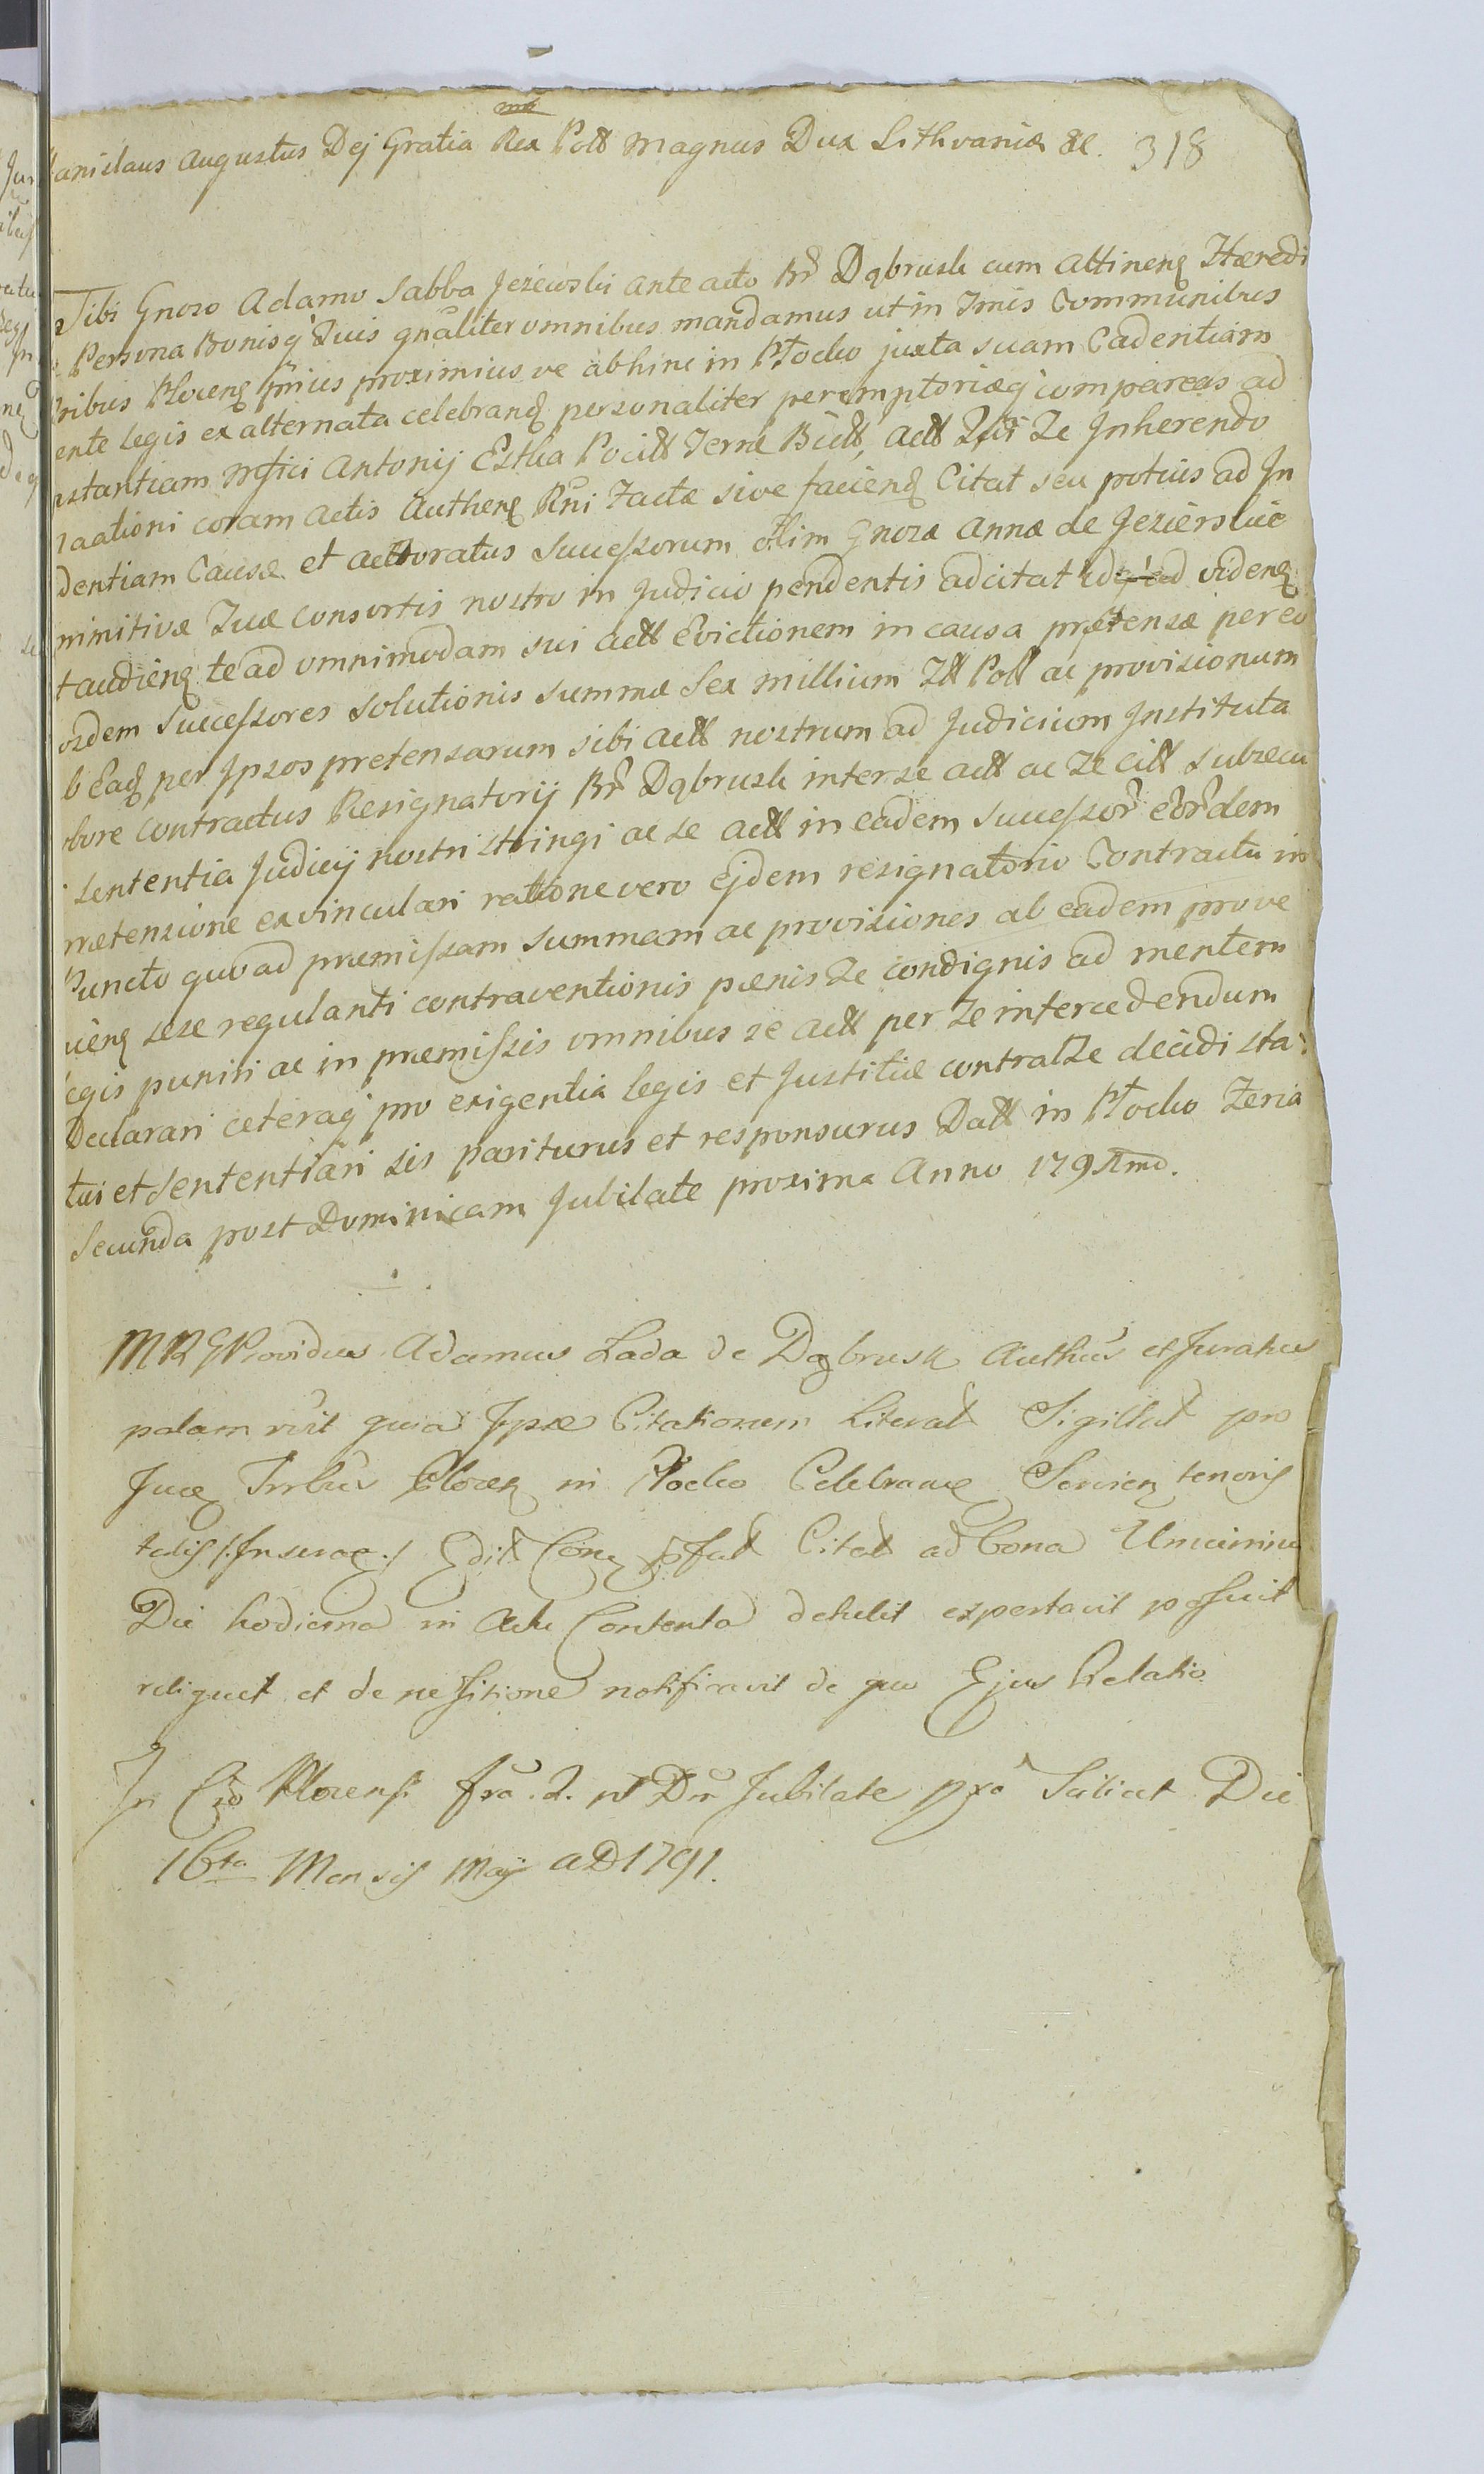 anislaus Augustus Dej Gratia Rex Poll Magnus Dux Lithvaniæ &c. 318
Tibi Gnoso Adamo Sabba Jezewski ante acto Br Dąbrusk cum Attinenq Hæredi
Persona Bonisq Tuis gnaliter omnibus mandamus ut in Tmis Communibus
tribus Plocenq pmis proximius ve abhinc in Płocko juxta suam Cadentiam
ente legis ex alternata celebranq personaliter peremptoriæq compareas ad
nstantiam Mfici Antonij Estka Pocill Terræ Biell, Actt Zui Ze Inherendo
raationi coram Actis Authenq Rni factæ sive facienq Citat seu potius ad In
dentiam Causæ et actoratus Successorum olim Gnosæ Annæ de Jezierskie
nimitivæ Tuæ Consortis nostro in Judicio pendentis adcitat id videnq
t audienq te ad omnimodam sui Actt Evictionem in causa prætensæ per eo
osdem Successores Solutionis Summæ Sex millium Zll Poll ac provisionum
b Eadq per Ipsos pretensarum sibi Actt nostrum ad Judicium Instituta
bore Contractus Resignatorij Br Dąbrusk inter se Actt ac Ze Citt Subsecu
Sententia Judicij nostri stringi ac se Actt in eadem Successor eordem
rætensione exvinculari ratione vero Ejdem resignatorio Contractu in
Puncto quoad præmissam Summam ac provisiones ab eadem prove
nienq sese regulanti contraventionis pænis Ze condignis ad mentem
legis puniri ac in præmissis omnibus se Actt per Ze intercedendum
Declarari ceteraq pro exigentia legis et Justitiæ contra Ze decidi sta
tui et Sententiari sis pariturus et responsurus Datt in Płocko Feria
Secunda post Dominicam Jubilate proxima Anno 1791mo.
MRG Providus Adamus Lada de Dąbrusk Authus et Juratus
palam rcit quia Ipse Citationem Literat Sigillat pro
Juce Trrbus Plocenq in Płocko Celebranq Servienq tenoris
talis /:Inseraq:/ Edit Conq Citat ad bona
Die hodierna in Actu Contenta detulit exportavit posuit
reliquit et de positione notificavit de quo Ejus Relatio
In Cro Plocensi fra. 2. pt Dm Jubilate pxa Scilicet Die
16ta Mensis Maij AD 1791.